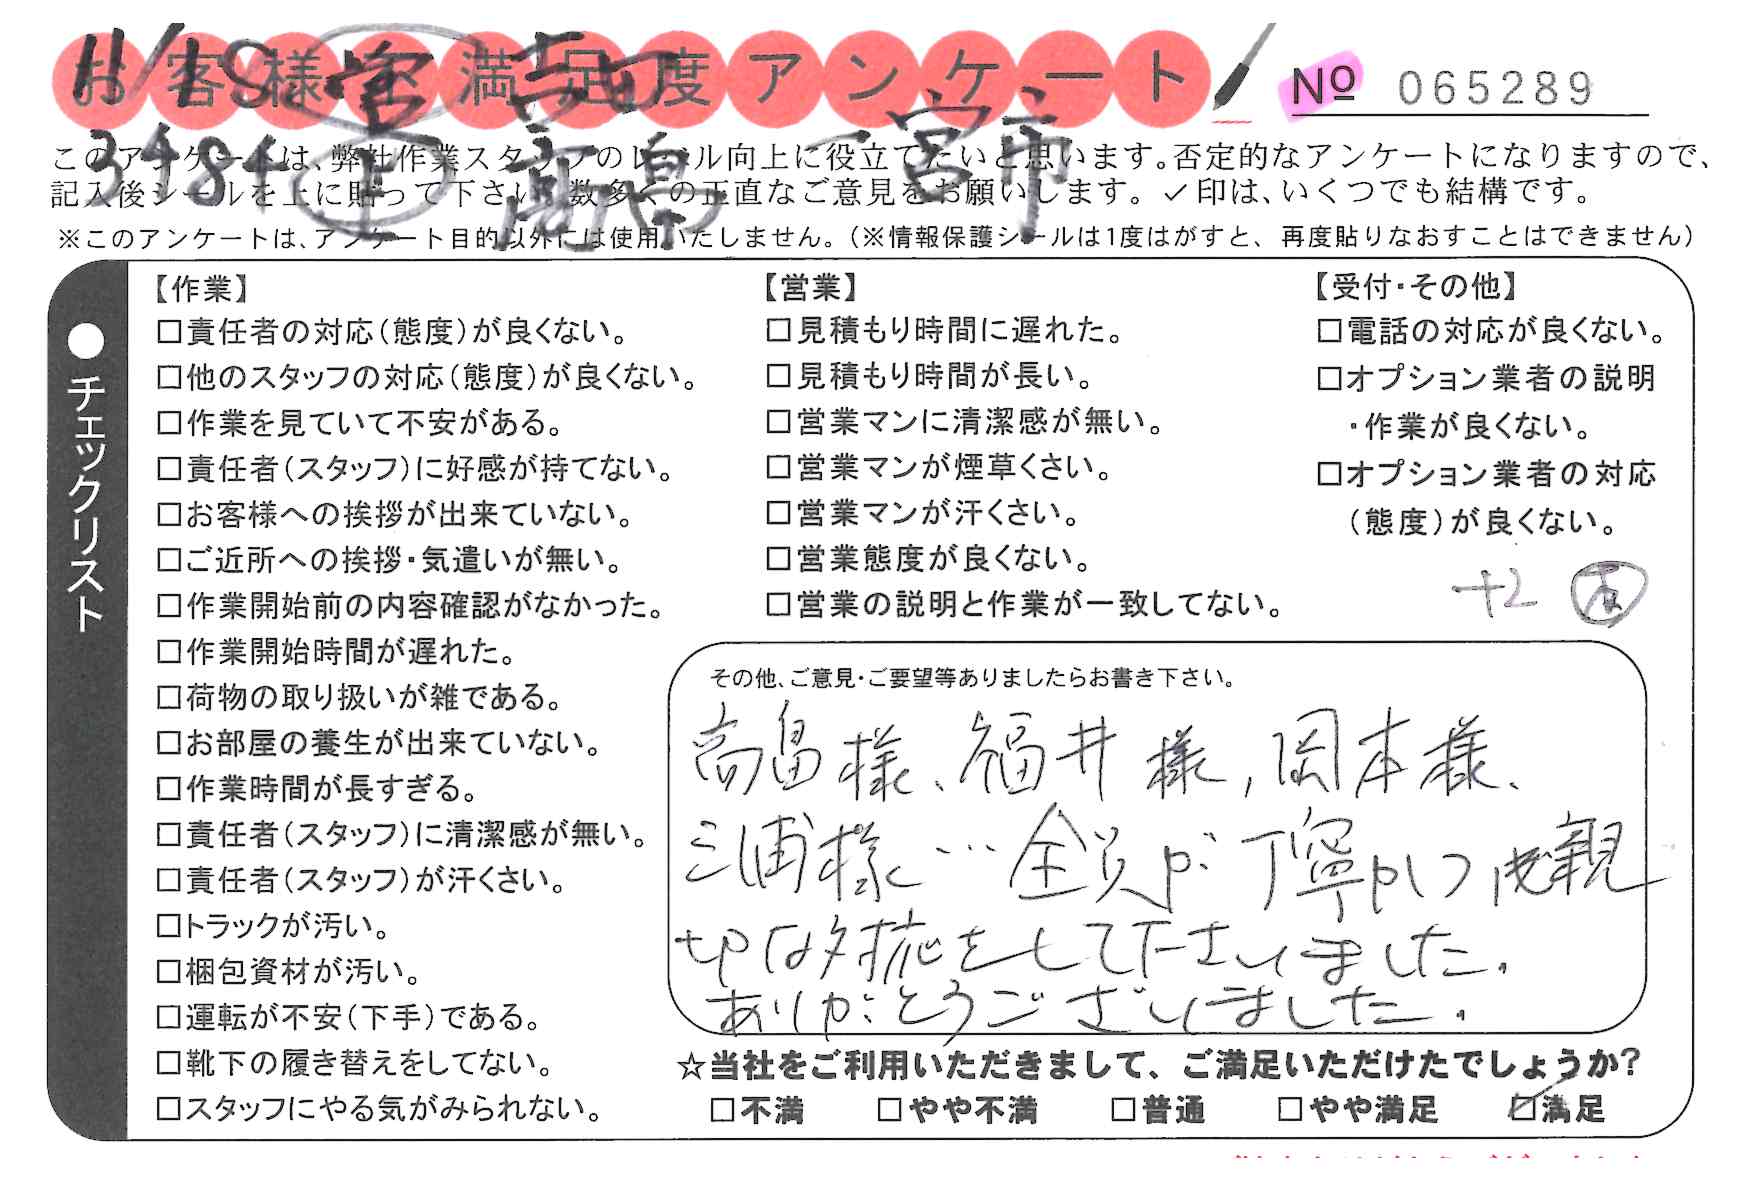 お客様不満足度アンケート
№ 065289
11/18 営 吉田
3484 運 高畠 一宮市
このアンケートは、弊社作業スタッフのレベル向上に役立てたいと思います。否定的なアンケートになりますので、
記入後シールを上に貼って下さい。数多くの正直なご意見をお願いします。✓印は、いくつでも結構です。
※このアンケートは、アンケート目的以外には使用いたしません。(※情報保護シールは1度はがすと、再度貼りなおすことはできません)
●チェックリスト
【作業】
□責任者の対応(態度)が良くない。
□他のスタッフの対応(態度)が良くない。
□作業を見ていて不安がある。
□責任者(スタッフ)に好感が持てない。
□お客様への挨拶が出来ていない。
□ご近所への挨拶・気遣いが無い。
□作業開始前の内容確認がなかった。
□作業開始時間が遅れた。
□荷物の取り扱いが雑である。
□お部屋の養生が出来ていない。
□作業時間が長すぎる。
□責任者(スタッフ)に清潔感が無い。
□責任者(スタッフ)が汗くさい。
□トラックが汚い。
□梱包資材が汚い。
□運転が不安(下手)である。
□靴下の履き替えをしてない。
□スタッフにやる気がみられない。
【営業】
□見積もり時間に遅れた。
□見積もり時間が長い。
□営業マンに清潔感が無い。
□営業マンが煙草くさい。
□営業マンが汗くさい。
□営業態度が良くない。
□営業の説明と作業が一致してない。
【受付・その他】
□電話の対応が良くない。
□オプション業者の説明
・作業が良くない。
□オプション業者の対応
(態度)が良くない。
+2
その他、ご意見・ご要望等ありましたらお書き下さい。
高畠様、福井様,岡本様、
三浦様…全員が丁寧かつ親
切な対応をして下さいました。
ありがとうございました。
☆当社をご利用いただきまして、ご満足いただけたでしょうか?
□不満 □やや不満 □普通 □やや満足 ☑満足